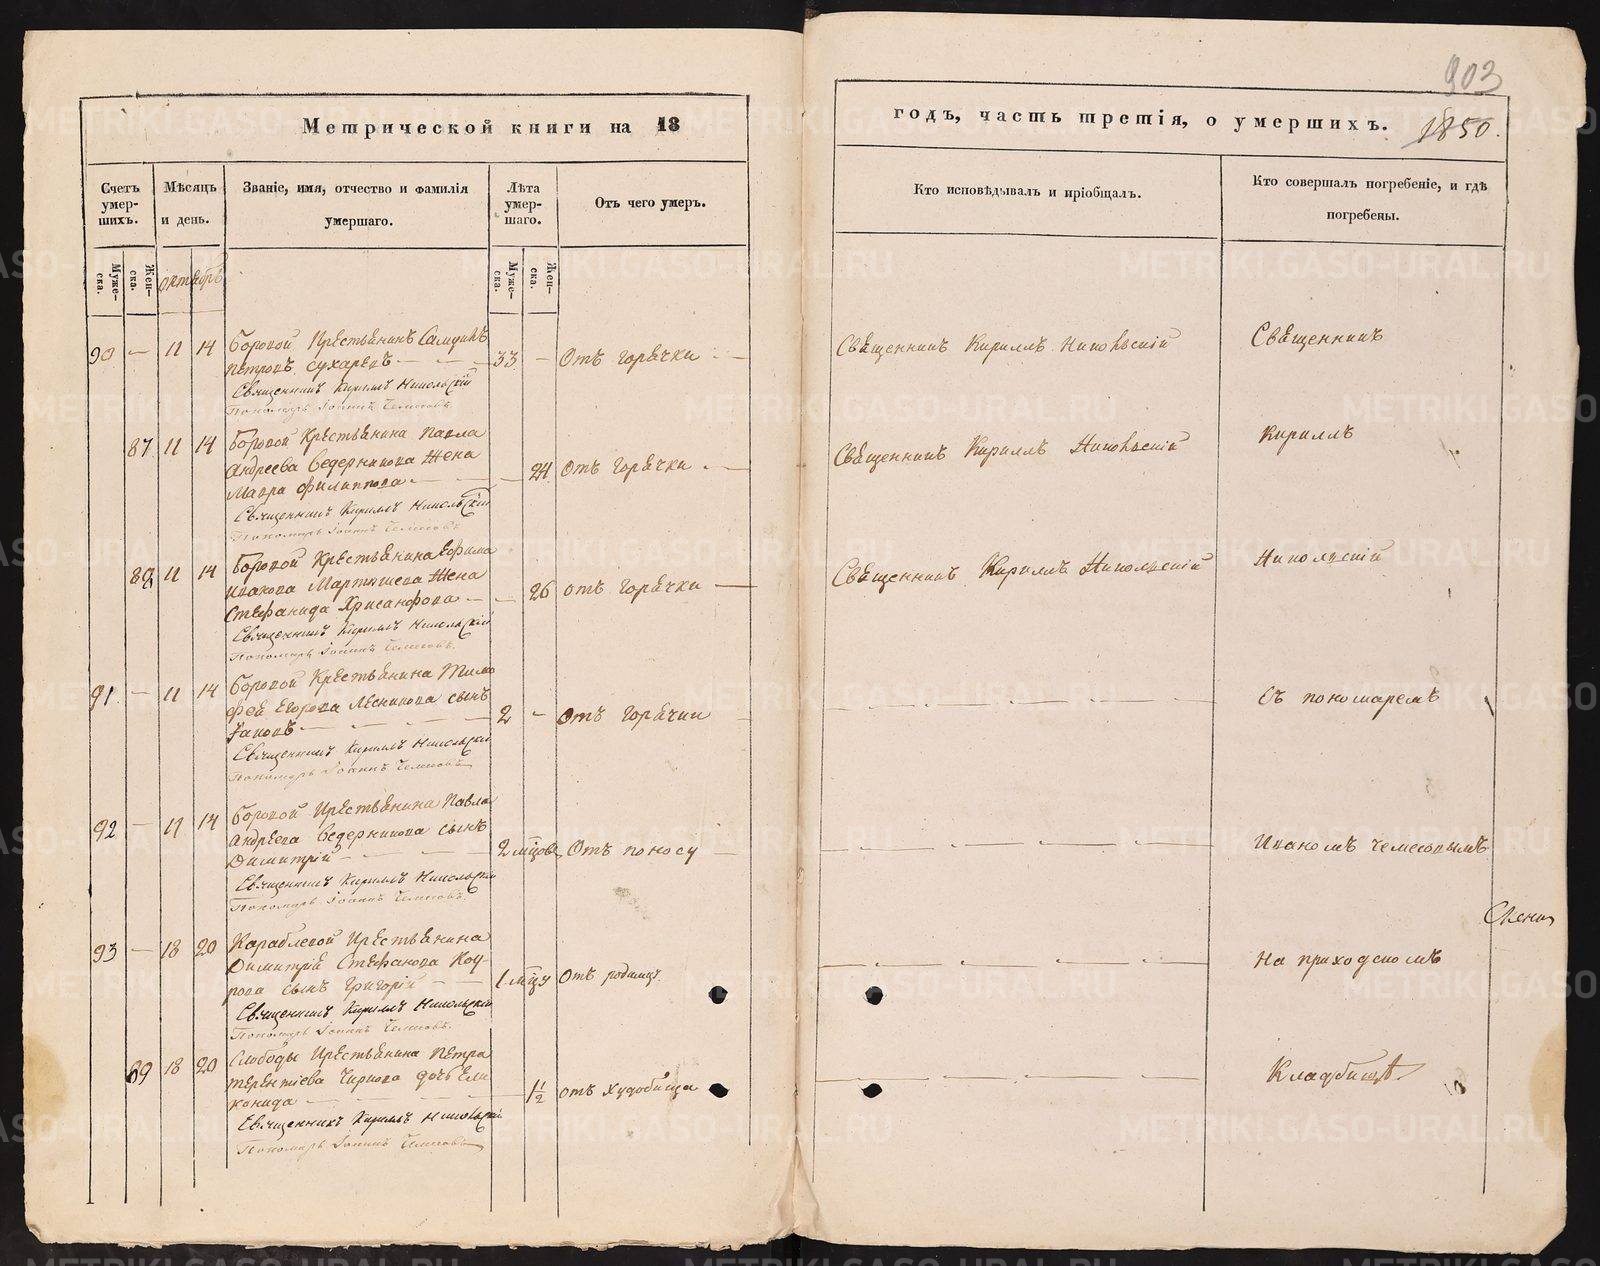 903
Метрической книги на 18
годъ, часть третія, о умершихъ. 1850.
Счетъ умер-шихъ.
Мѣсяцъ и день.
Званіе, имя, отчество и фамилія умершаго.
Лѣта умер-шаго.
Отъ чего умеръ.
Кто исповѣдывалъ и пріобщалъ.
Кто совершалъ погребеніе, и гдѣ погребены.
Муже-ска.
Жен-ска.
октябрь
Муже-ска.
Жен-ска.
90 — 11 14 Боровой Крестьянинъ
Петровъ Сухаревъ — 33 — Отъ горячки
Священникъ Кириллъ Никольскій
Священникъ
Священникъ Кириллъ Никольскій
Пономарь Іоаннъ Чемесовъ
87 11 14 Боровой Крестьянина Павла
Андреева Ведерникова Жена
Мавра Филиппова — 24 Отъ горячки
Священникъ Кириллъ Никольскій
Кириллъ
Священникъ Кириллъ Никольскій
Пономарь Іоаннъ Чемесовъ
88 11 14 Боровой Крестьянина Ефима
Мартышева Жена
Стефанида Хрисанфова — 26 отъ горячки
Священникъ Кириллъ Никольскій
Никольскій
Священникъ Кириллъ Никольскій
Пономарь Іоаннъ Чемесовъ
91 — 11 14 Боровой Крестьянина Тимо
фея Егорова Лесникова сынъ
Яковъ — 2 — Отъ горячки
Съ пономаремъ
Священникъ Кириллъ Никольскій
Пономарь Іоаннъ Чемесовъ
92 — 11 14 Боровой Крестьянина Павла
Андреева Ведерникова сынъ
Димитрій — 2 мѣцовъ Отъ поносу
Иваномъ Чемесовымъ
Священникъ Кириллъ Никольскій
Пономарь Іоаннъ Чемесовъ
93 — 18 20 Крестьянина
Димитрія Стефанова Коу
рова сынъ Григорій — 1 мѣцу Отъ родимцу
На приходскомъ
Священникъ Кириллъ Никольскій
Пономарь Іоаннъ Чемесовъ
89 18 20 Слободы Крестьянина Петра
Терентіева Чиркова дочь Ели
конида — 1½ отъ худобища
Кладбищѣ
Священникъ Кириллъ Никольскій
Пономарь Іоаннъ Чемесовъ
METRIKI.GASO-URAL.RU